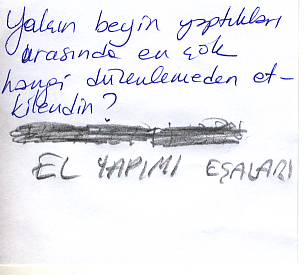 Yalçın beyin yaptıkları
arasında en çok
hangi düzenlemeden et-
kilendin?
EL YAPIMI EŞALARI